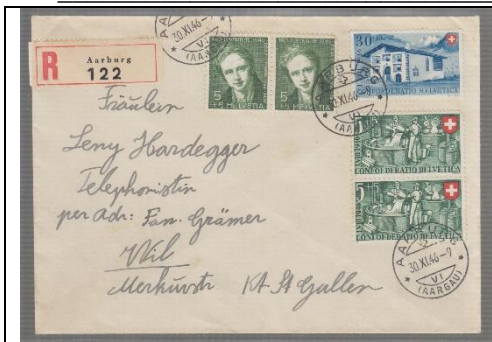 R Aarburg
122
AARBURG
30.XI.46-9
VI
(AARGAU)
5
HELVETIA
5
HELVETIA
30
CONFOEDERATIO HELVETICA
CONFOEDERATIO HELVETICA
5
CONFOEDERATIO HELVETICA
AARBURG
30.XI.46-9
VI
(AARGAU)
Fräulein
Leny Hardegger
Telephonistin
per Adr: Fam. Grämer
Wil
Merkurstr Kt. St. Gallen